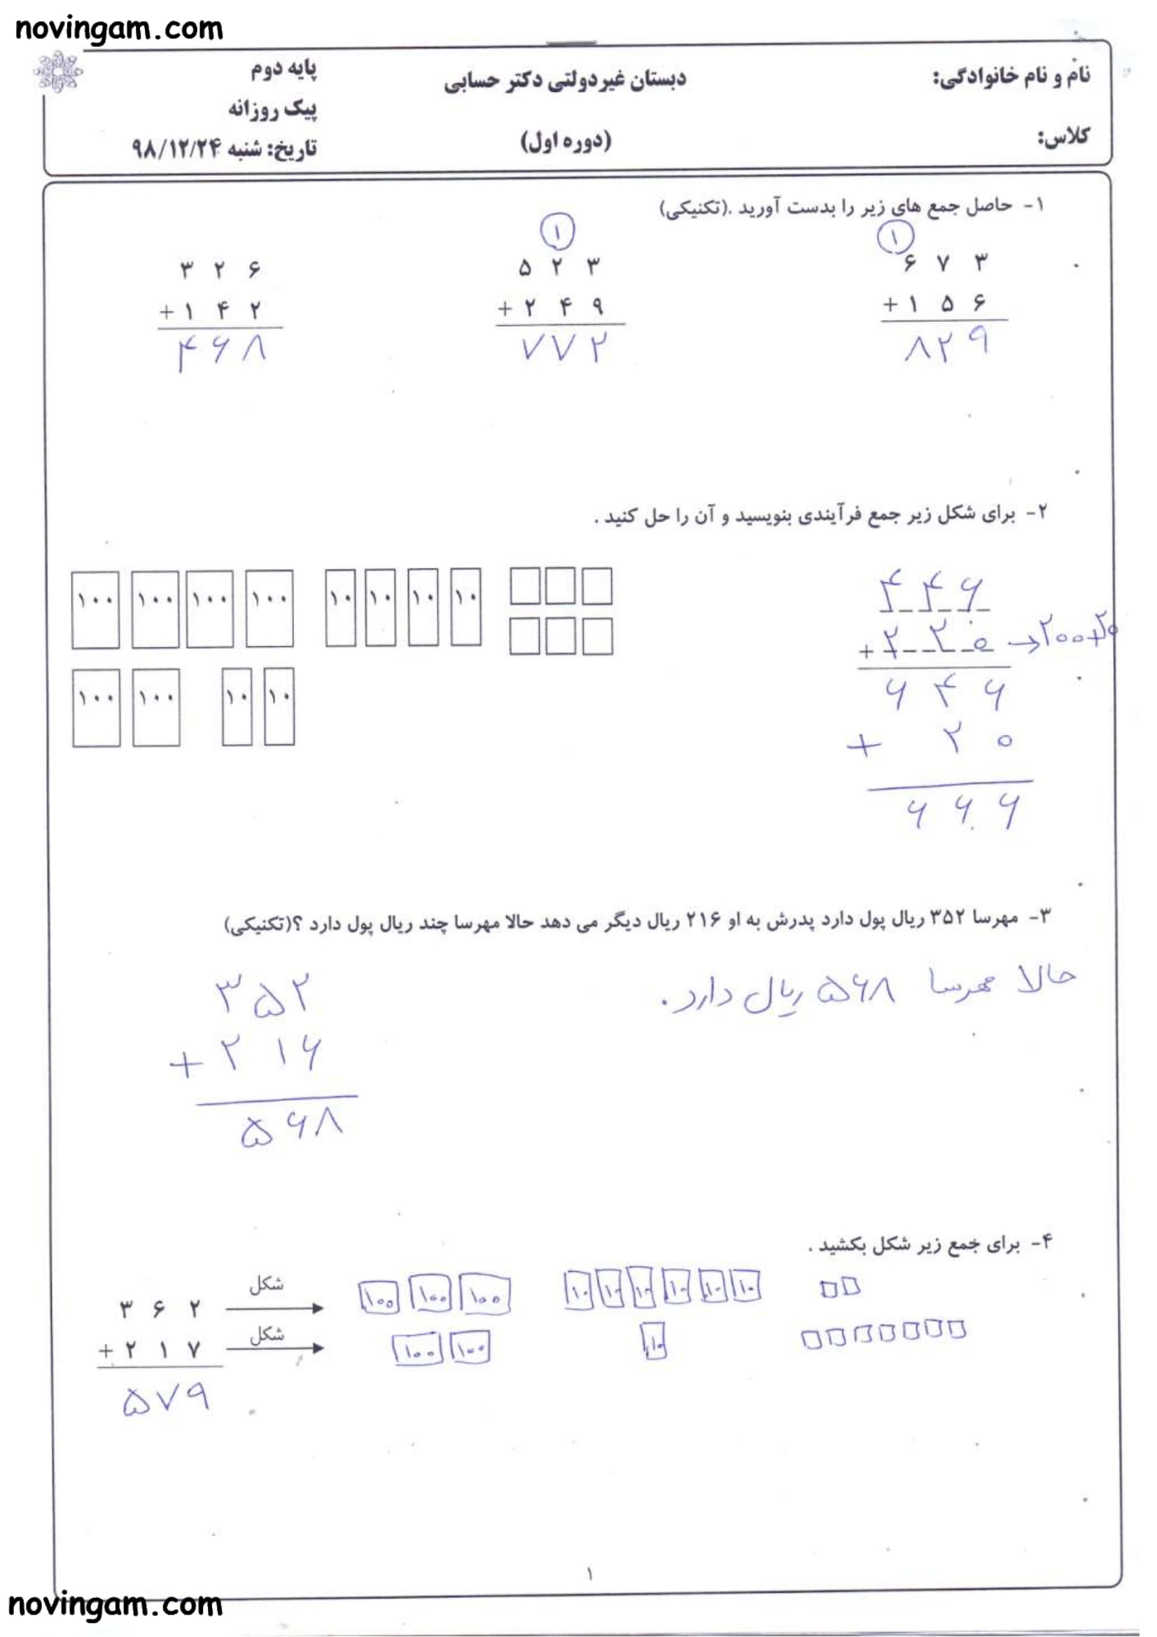 novingam.com
نام و نام خانوادگی:
دبستان غیردولتی دکتر حسابی
پایه دوم
پیک روزانه
کلاس:
(دوره اول)
تاریخ: شنبه ۹۸/۱۲/۲۴
۱- حاصل جمع های زیر را بدست آورید .(تکنیکی)
۱
۱
۳ ۲ ۶
۵ ۲ ۳
۶ ۷ ۳
+ ۱ ۴ ۲
+ ۲ ۴ ۹
+ ۱ ۵ ۶
۴ ۶ ۸
۷ ۷ ۲
۸ ۲ ۹
۲- برای شکل زیر جمع فرآیندی بنویسید و آن را حل کنید .
۱۰۰ ۱۰۰ ۱۰۰ ۱۰۰ ۱۰ ۱۰ ۱۰ ۱۰
۱۰۰ ۱۰۰ ۱۰ ۱۰
۴ ۴ ۶
+ ۲ ۲ ۰ → ۲۰۰+۲۰
۶ ۴ ۶
+ ۲ ۰
۶ ۶ ۶
۳- مهرسا ۳۵۲ ریال پول دارد پدرش به او ۲۱۶ ریال دیگر می دهد حالا مهرسا چند ریال پول دارد ؟(تکنیکی)
حالا مهرسا ۵۶۸ ریال دارد .
۳۵۲
+ ۲۱۶
۵۶۸
۴- برای جمع زیر شکل بکشید .
۳ ۶ ۲ شکل ۱۰۰ ۱۰۰ ۱۰۰ ۱۰ ۱۰ ۱۰ ۱۰ ۱۰ ۱۰
+ ۲ ۱ ۷ شکل ۱۰۰ ۱۰۰ ۱۰
۵۷۹
۱
novingam.com